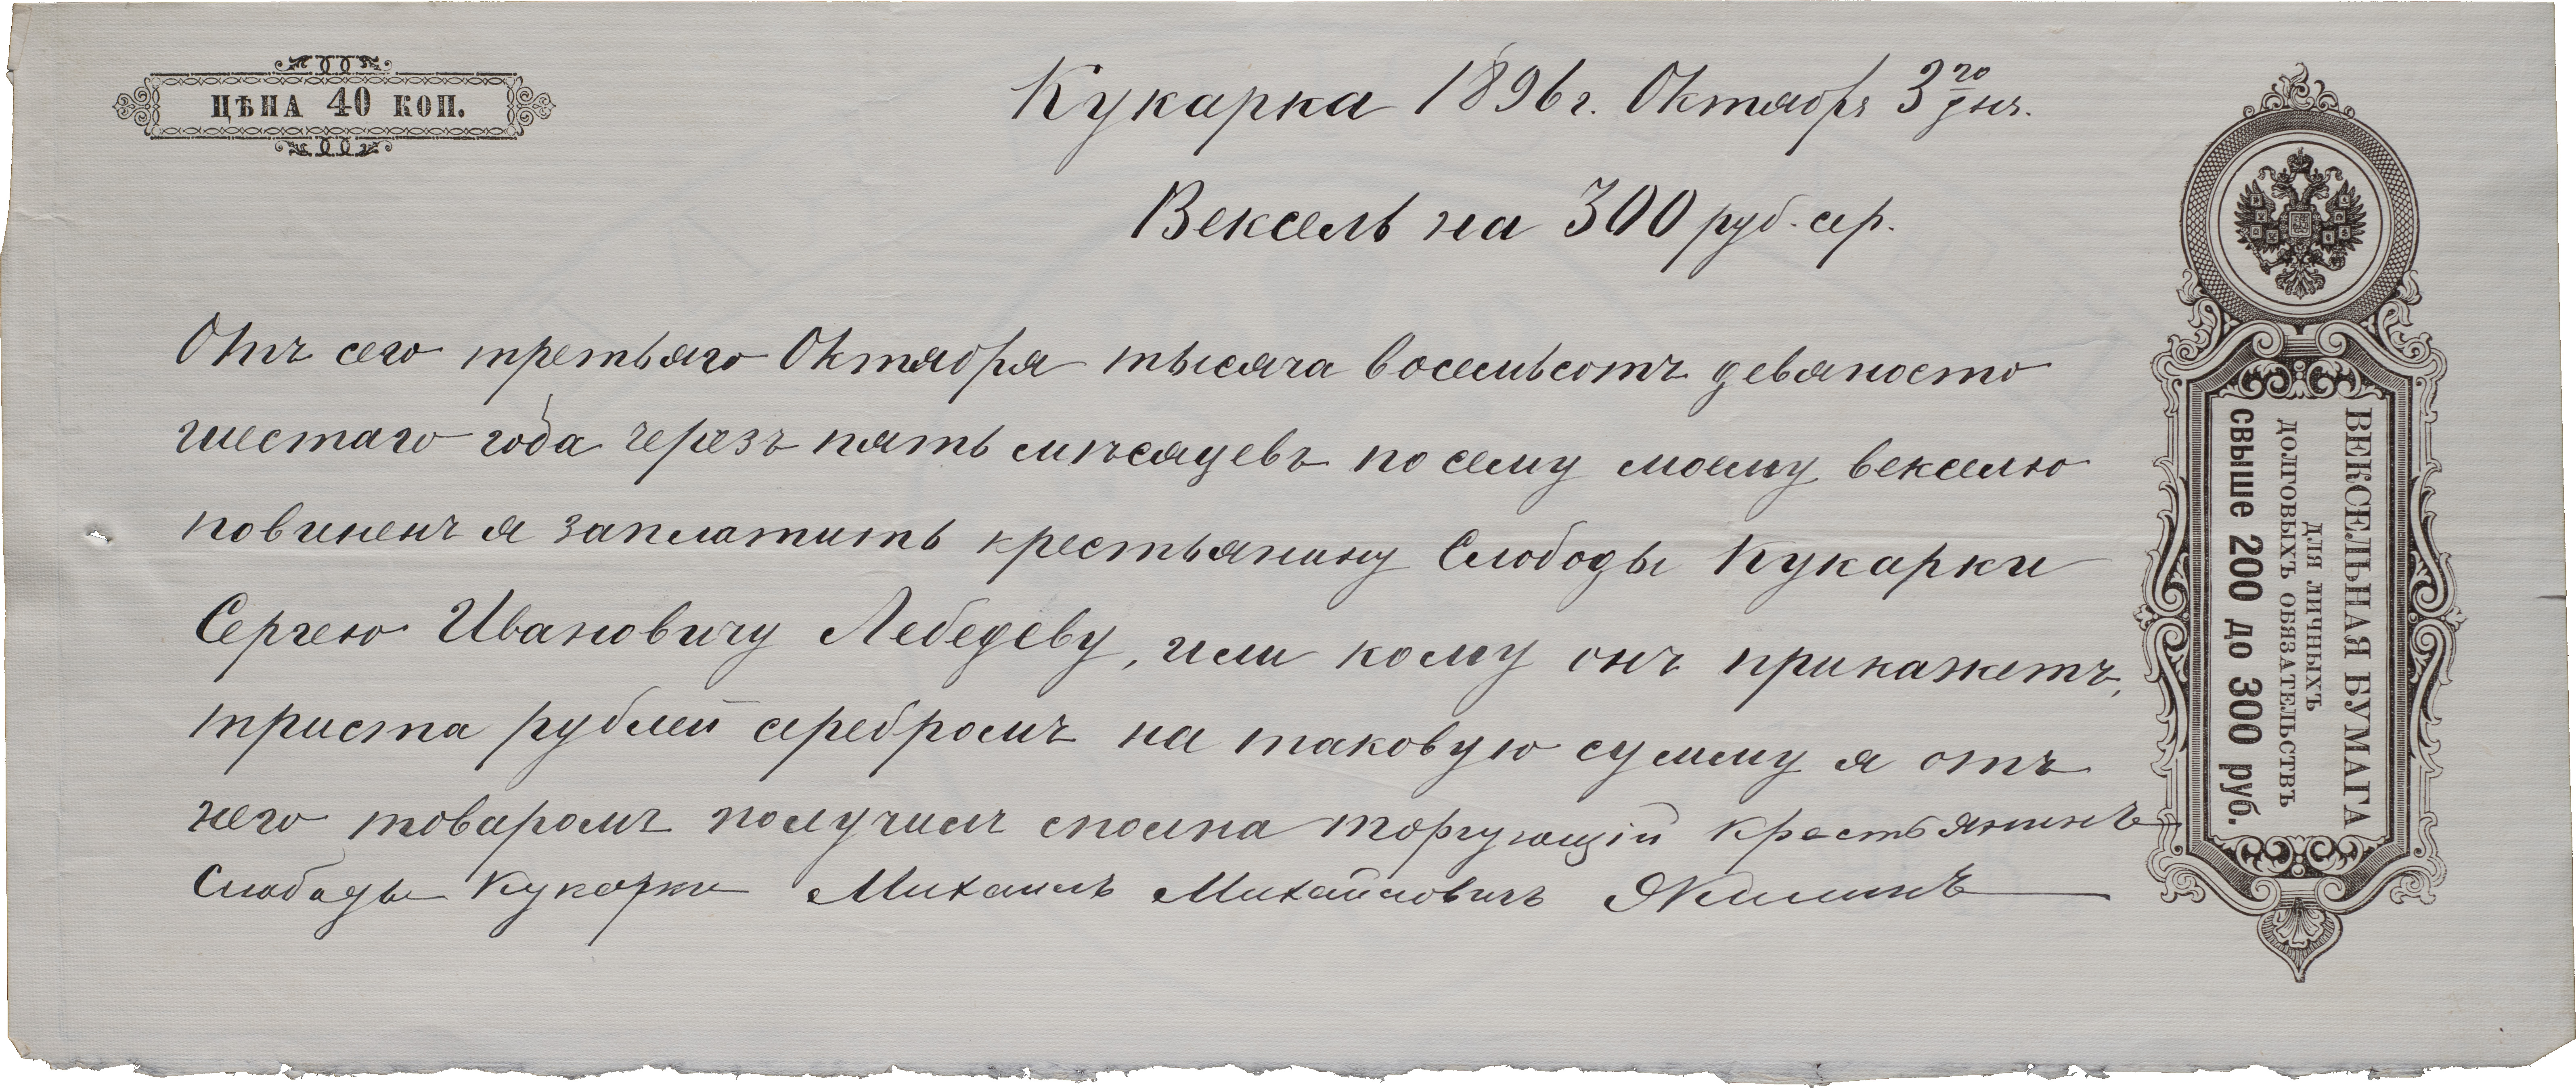 ЦѢНА 40 КОП.
Кукарка 1896 г. Октября 3го дня.
Вексель на 300 руб. сер.
Отъ сего третьяго Октября тысяча восемьсотъ девяносто
шестаго года черезъ пять мѣсяцевъ по сему моему векселю
повиненъ я заплатить крестьянину Слободы Кукарки
Сергею Ивановичу Лебедеву, или кому онъ прикажетъ,
триста рублей серебромъ на таковую сумму я отъ
него товаромъ получилъ сполна торгующій крестьянинъ
Слободы Кукарки Михаилъ Михайловичъ Якиминъ
ВЕКСЕЛЬНАЯ БУМАГА
ДЛЯ ЛИЧНЫХЪ
ДОЛГОВЫХЪ ОБЯЗАТЕЛЬСТВЪ
свыше 200 до 300 руб.